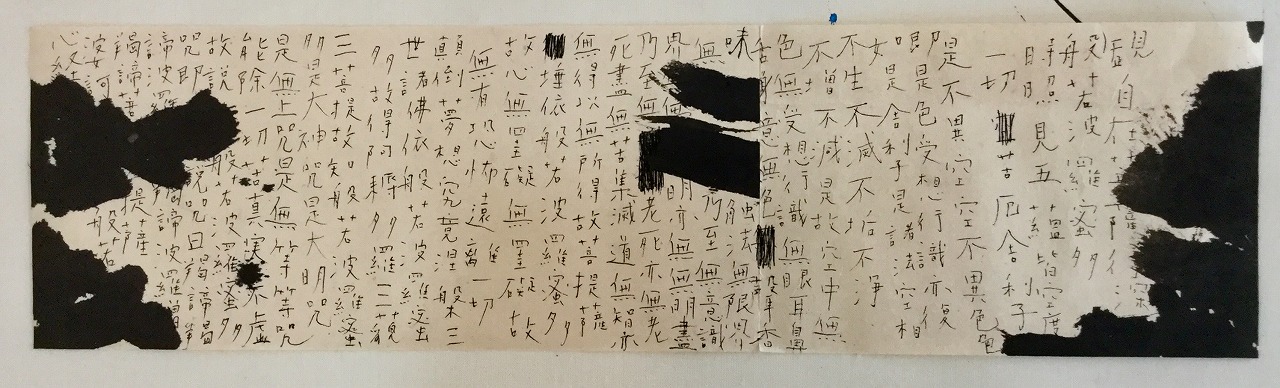 觀自在菩
般若波羅蜜多
時照見五蘊皆空度
一切苦厄舍利子
是不異空空不異色色
即是色受想行識亦復
如是舍利子是諸法空相
不生不滅不垢不淨
不增不減是故空中無
色無受想行識無眼耳鼻
舌身意無色聲香
味觸法無眼界
無 乃至無意識
界無 明亦無無明盡
乃至無 老死亦無老
死盡無苦集滅道無智亦
無得以無所得故菩提薩
埵依般若波羅蜜多
故心無罣礙無罣礙故
無有恐怖遠離一切
顛倒夢想究竟涅槃三
世諸佛依般若波羅蜜
多故得阿耨多羅三藐
三菩提故知般若波羅蜜
多是大神咒是大明咒
是無上咒是無等等咒
能除一切苦真實不虛
故說般若波羅蜜多
咒即 咒曰揭諦揭
諦波羅 揭諦波羅僧
揭諦菩提薩
婆訶 般若
心經